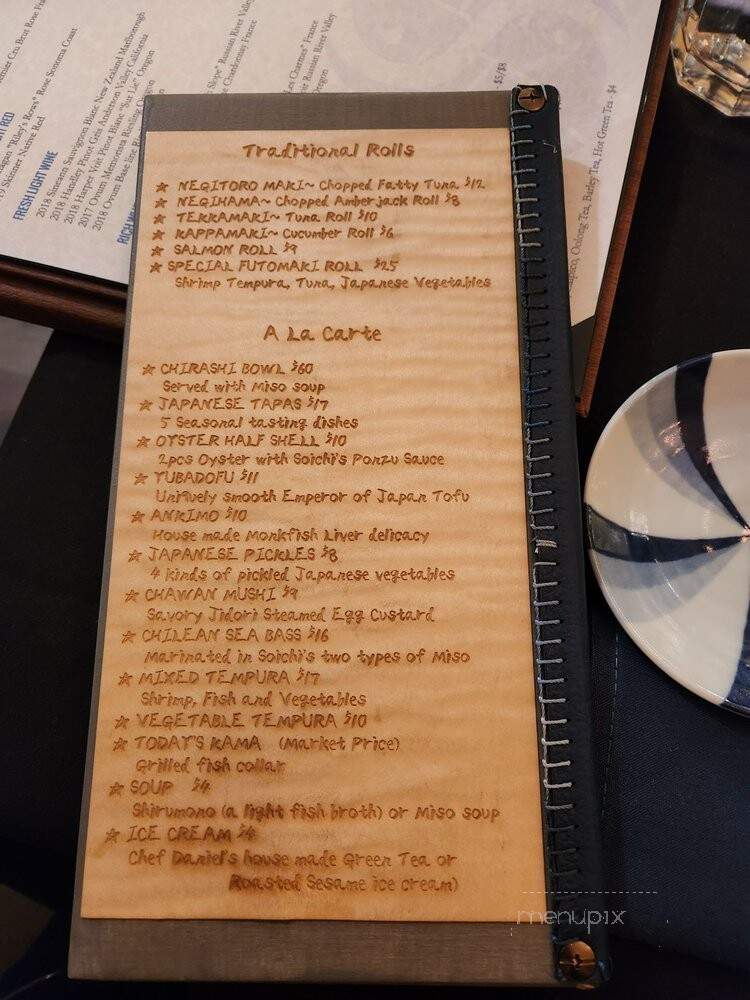 Traditional Rolls
☆ NEGITORO MAKI~ Chopped Fatty Tuna $12
☆ NEGIHAMA~ Chopped Amberjack Roll $8
☆ TEKKAMAKI~ Tuna Roll $10
☆ KAPPAMAKI~ Cucumber Roll $6
☆ SALMON ROLL $9
☆ SPECIAL FUTOMAKI ROLL $25
Shrimp Tempura, Tuna, Japanese Vegetables
A La Carte
☆ CHIRASHI BOWL $60
Served with Miso soup
☆ JAPANESE TAPAS $17
5 Seasonal tasting dishes
☆ OYSTER HALF SHELL $10
2pcs Oyster with Soichi's Ponzu Sauce
☆ YUBADOFU $11
Uniquely smooth Emperor of Japan Tofu
☆ ANKIMO $10
House made Monkfish Liver delicacy
☆ JAPANESE PICKLES $8
4 kinds of pickled Japanese vegetables
☆ CHAWAN MUSHI $9
Savory Jidori Steamed Egg Custard
☆ CHILEAN SEA BASS $16
Marinated in Soichi's two types of Miso
☆ MIXED TEMPURA $17
Shrimp, Fish and Vegetables
☆ VEGETABLE TEMPURA $10
☆ TODAY'S KAMA (Market Price)
Grilled fish collar
☆ SOUP $4
Shirumono (a light fish broth) or Miso soup
☆ ICE CREAM $4
Chef Daniel's house made Green Tea or
Roasted Sesame ice cream)
Rose Sonoma Coast
Skinner Native Red
FRESH LIGHT WINE
2018 Simmon Sauvignon Blanc New Zealand Marlborough
2018 Handley Pinot Gris Anderson Valley California
2018 Harper Voit Pinot Blanc "Sur Lie" Oregon
2017 Ovum Memorista Riesling Oregon
2018 Ovum Base line
RICH
Russian River Valley
Chardonnay France
France
Russian River Valley
Oregon
$5/$8
Oolong Tea, Barley Tea, Hot Green Tea - $4
menupix